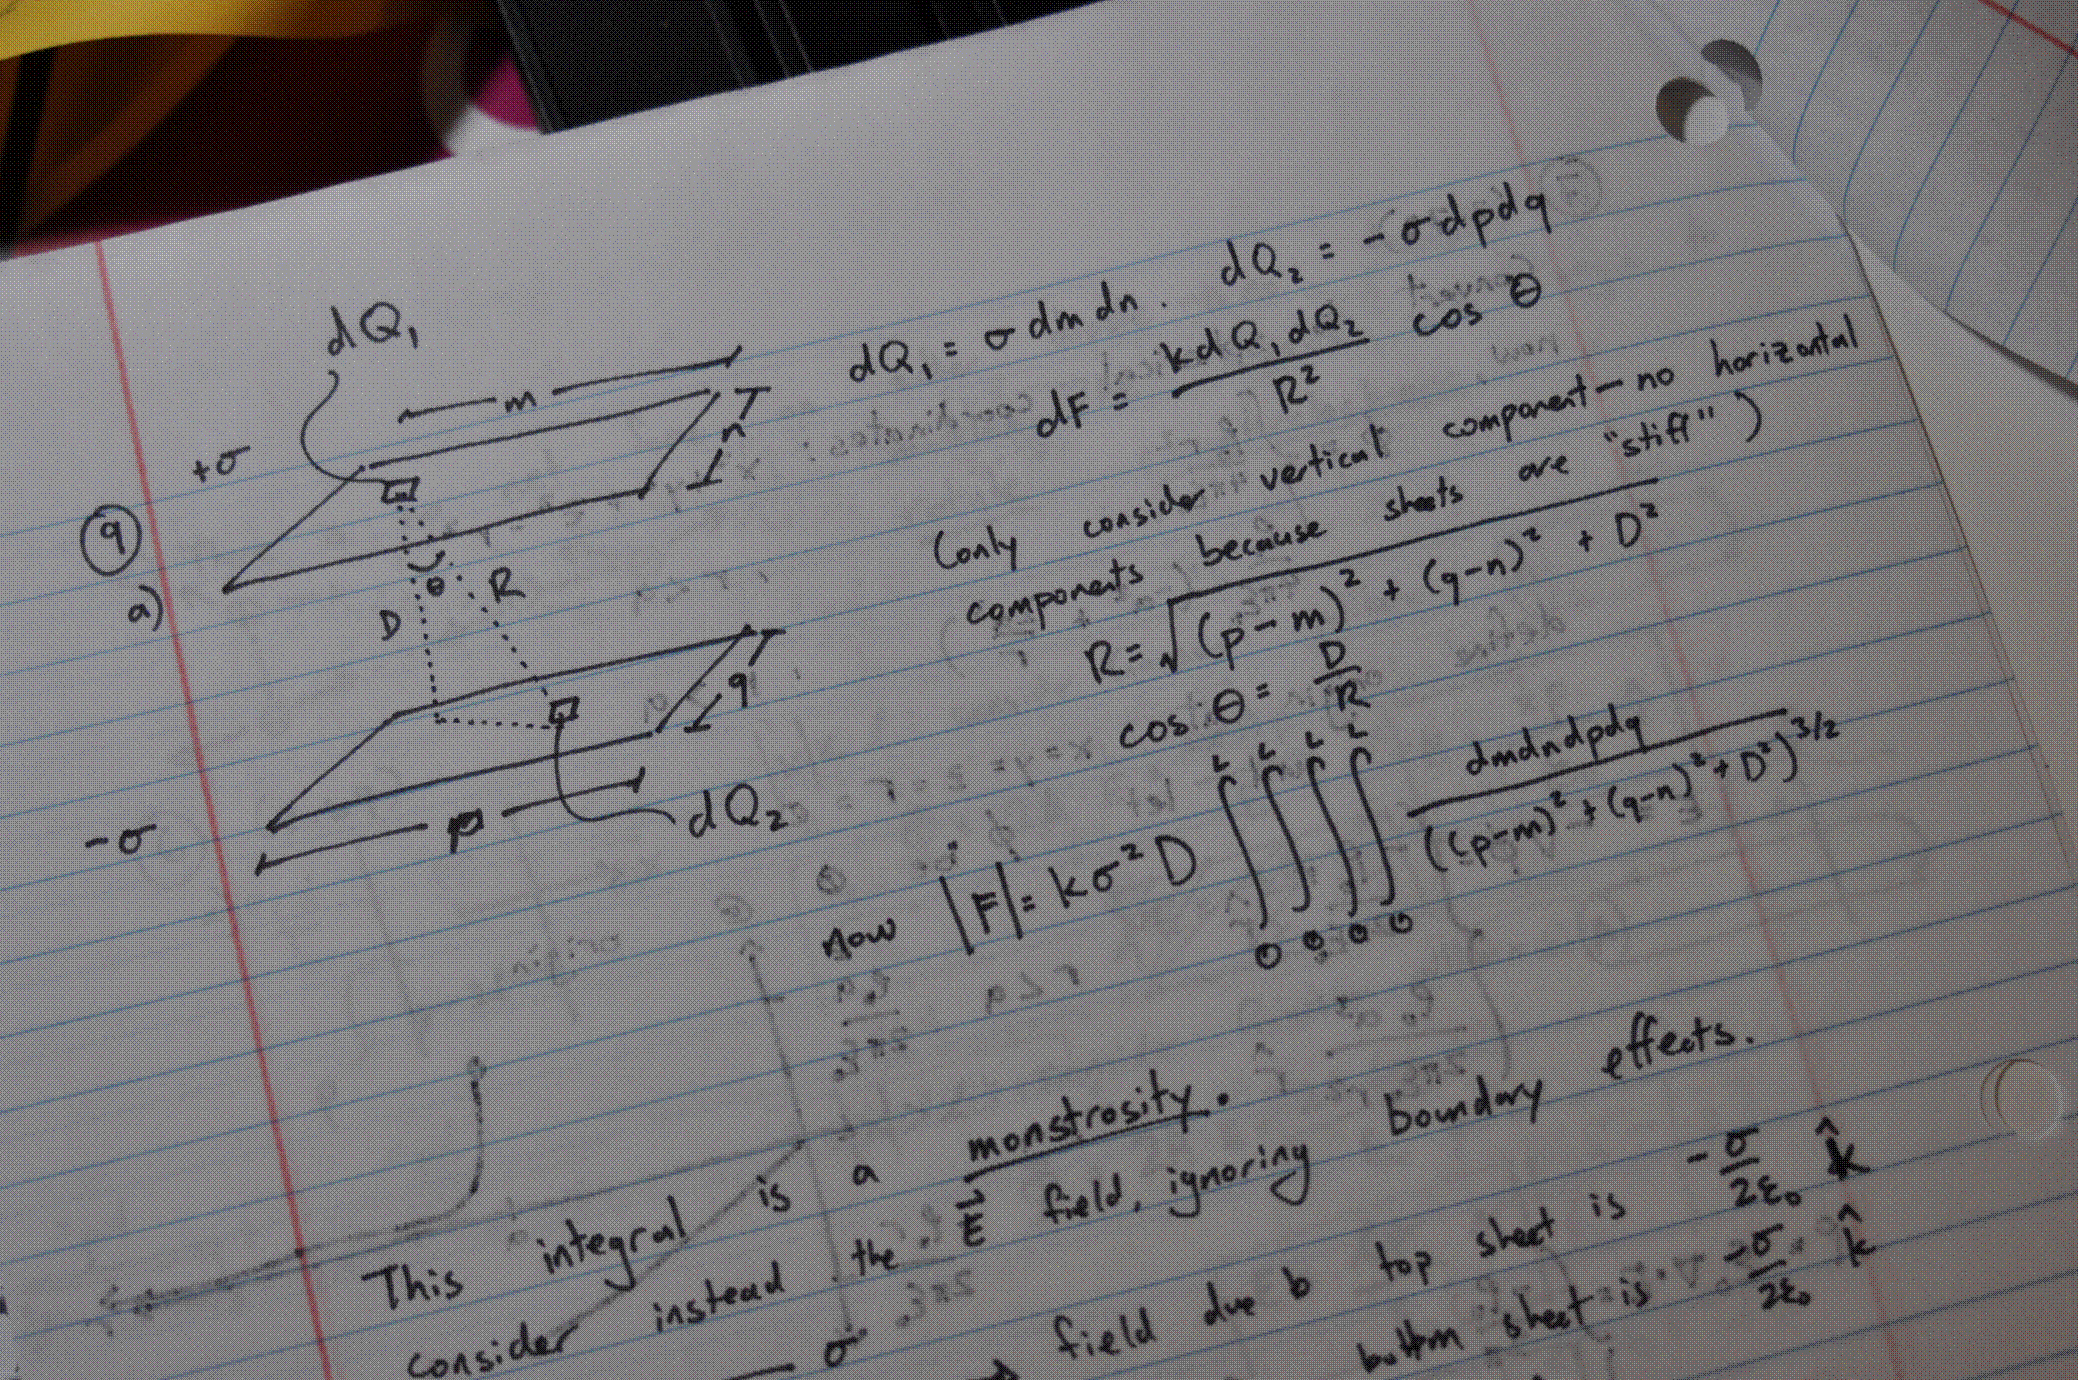 dQ₁
+σ
m
n
9
a)
D
θ
R
q
-σ
p
dQ₂
dQ₁ = σ dm dn. dQ₂ = -σ dpdq
dF = k dQ₁ dQ₂ / R² cos θ
(only consider vertical component - no horizontal
components because sheets are "stiff")
R = √((p-m)² + (q-n)² + D²)
cos θ = D/R
now |F| = kσ²D ∫₀ᴸ ∫₀ᴸ ∫₀ᴸ ∫₀ᴸ dmdndpdq / ((p-m)² + (q-n)² + D²)^3/2
This integral is a monstrosity.
Consider instead the E⃗ field, ignoring boundary effects.
σ
field due to top sheet is -σ/2ε₀ k̂
bottom sheet is -σ/2ε₀ k̂